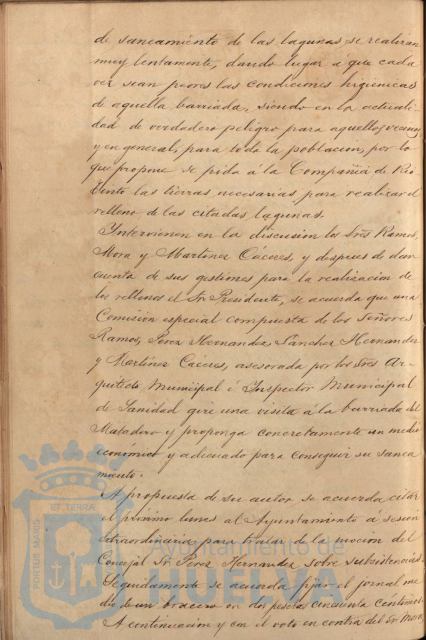 de saneamiento de las lagunas se realizan
muy lentamente, dando lugar á que cada
vez sean peores las condiciones higienicas
de aquella barriada, siendo en la actuali
dad de verdadero peligro para aquellos vecinos
y en general, para toda la población, por lo
que propone se pida á la Compañia de Rio
Tinto las tierras necesarias para realizar el
relleno de las citadas lagunas.
Intervienen en la discusión los Sres Ramos,
Mora y Martinez Cáceres, y despues de dar
cuenta de sus gestiones para la realización de
los rellenos el Sr. Presidente, se acuerda que una
Comisión especial compuesta de los Señores
Ramos, Perez Hernandez, Sanchez Hernandez
y Martinez Cáceres, asesorada por los Sres Ar-
quitecto Municipal é Inspector Municipal
de Sanidad gire una visita á la barriada del
Matadero y proponga concretamente un medio
económico y adecuado para conseguir su sanea
miento.
A propuesta de su autor se acuerda citar
el próximo lunes al Ayuntamiento á sesión
extraordinaria para tratar de la moción del
Concejal Sr. Perez Hernandez sobre subsistencias.
Seguidamente se acuerda fijar el jornal me
dio de un bracero en dos pesetas cincuenta centimos.
A continuación y con el voto en contra del Sr. Mora,
PORTUS MARIS
ET TERRÆ
Ayuntamiento de
HUELVA